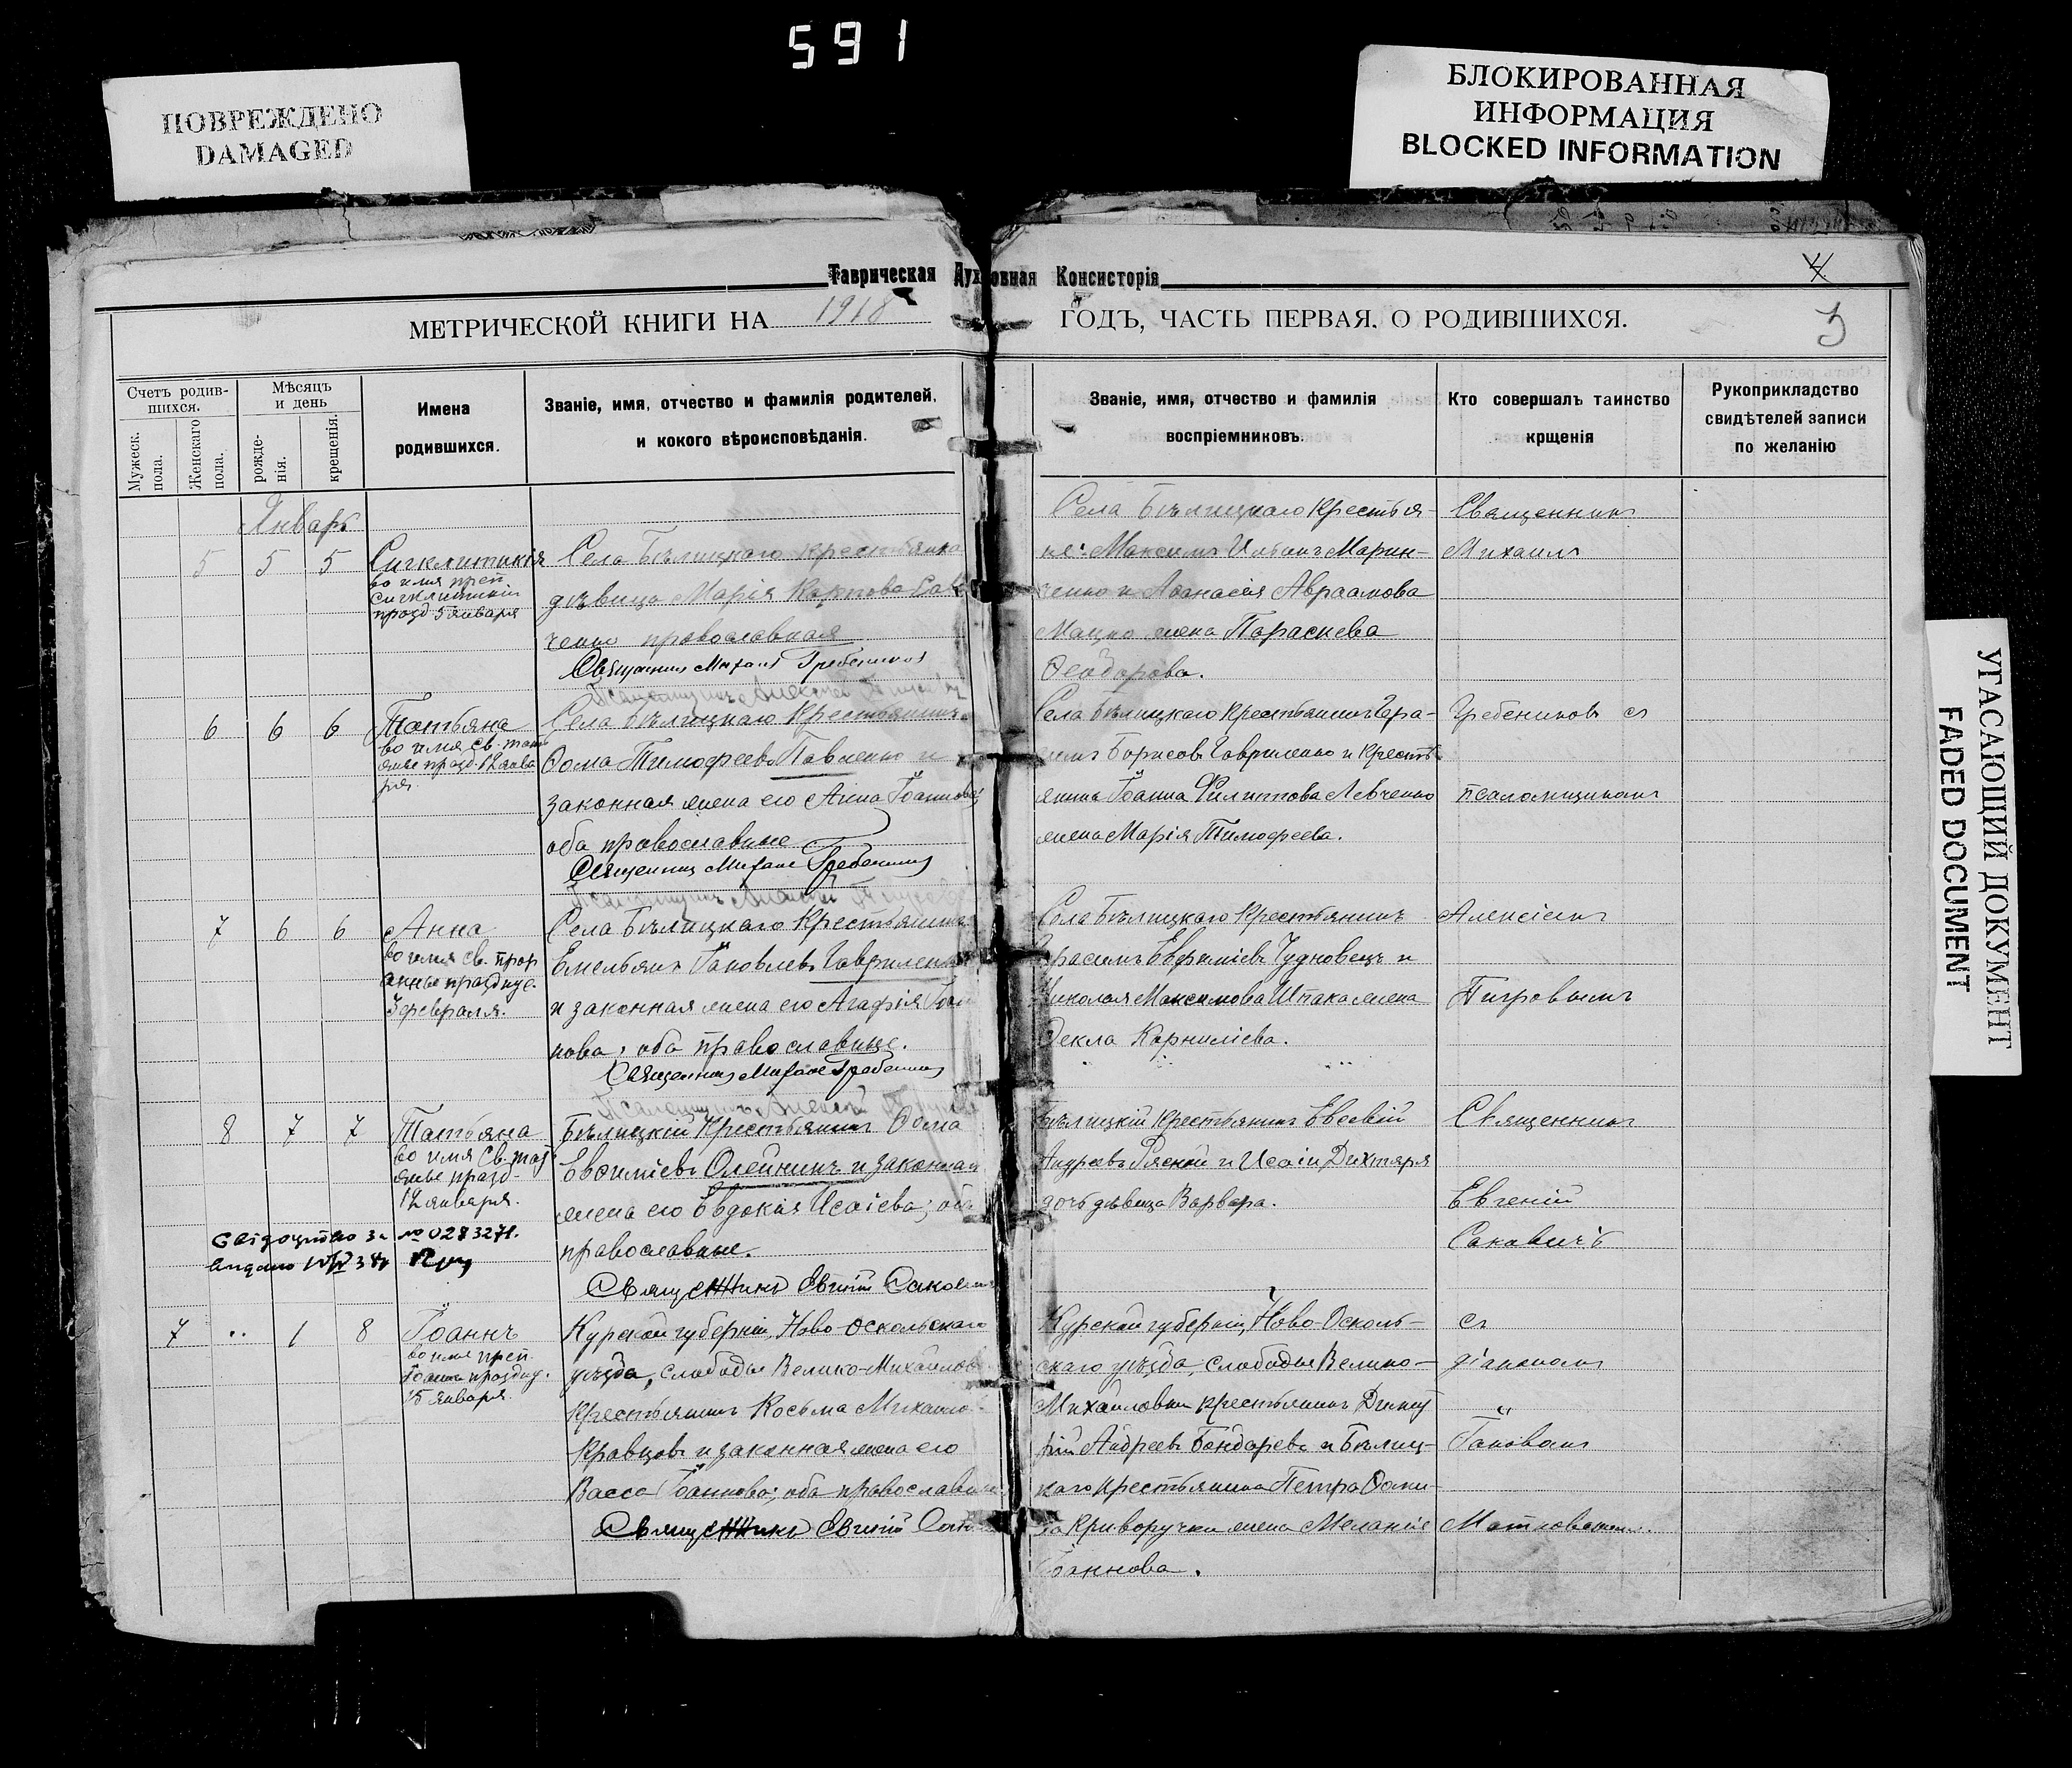 591
ПОВРЕЖДЕНО
DAMAGED
БЛОКИРОВАННАЯ
ИНФОРМАЦИЯ
BLOCKED INFORMATION
Таврическая Духовная Консисторія
4
МЕТРИЧЕСКОЙ КНИГИ НА 1918 ГОДЪ, ЧАСТЬ ПЕРВАЯ. О РОДИВШИХСЯ.
3
Счетъ родив-
шихся.
Мужеск.
пола.
Женскаго
пола.
Мѣсяцъ
и день
рожде-
нія.
крещенія.
Имена
родившихся.
Званіе, имя, отчество и фамилія родителей,
и кокого вѣроисповѣданія.
Званіе, имя, отчество и фамилія
воспріемниковъ.
Кто совершалъ таинство
крщенія
Рукоприкладство
свидѣтелей записи
по желанію
Январь
5 5 5
Сигклитикія
во имя преп.
Сигклитикіи
празд 5 января
Села Бѣлицкаго крестьянка
дѣвица Марія Карпова
ченко православная
Священник Михаил Гребеников
Села Бѣлицкаго Крестья-
не: Максимъ Марин-
ченко и Аѳанасія Авраамова
Мацко жена Параскева
Ѳеодорова.
Священник
Михаил
6 6 6
Татьяна
во имя св.
празд 12 янва
ря.
Села Бѣлицкаго Крестьянинъ
Ѳома Тимофеевъ Павленко и
законная жена его Анна Іоаннова;
оба православные
Священник Михаил Гребеников
Села Бѣлицкаго Крестьянинъ Гера-
симъ Борисовъ Гавриленко и Кресть-
янина Іоанна Филиппова Левченко
жена Марія Тимофеева.
Гребеников с
псаломщиком
7 6 6
Анна
во имя св. прор
анны праздн.
3 февраля.
Села Бѣлицкаго Крестьянинъ
Емельянъ Іаковлевъ Гавриленко
и законная жена его Агафія
нова; оба православные.
Священник Михаил Гребеников
Села Бѣлицкаго Крестьянинъ
Герасимъ Евфиміевъ Чудновецъ и
Николая Максимова Шпака жена
Ѳекла Корниліева.
Алексіем
Пигровымъ
8 7 7
Татьяна
во имя Св.
празд-
12 января.
Бѣлицкій Крестьянинъ Ѳома
Евѳиміевъ Олейникъ и законная
жена его Евдокія Исаіева; оба
православные.
Священникъ Евгеній Сакович
Бѣлицкій Крестьянинъ Евсевій
Андреевъ Рясной и Исаіи Дихтяря
дочь дѣвица Варвара.
Священник
Евгеній
Саковичъ
Свідоцтво за № 0283271.
видано
7 „ 1 8
Іоаннъ
во имя преп.
Іоанна праздн.
15 января.
Курской губерніи, Ново-Оскольскаго
уѣзда, слободы Велико-Михайловки
Крестьянинъ Косьма Михаило-
Кравцовъ и законная жена его
Васса Іоаннова; оба православные
Священникъ Евгеній
Курской губерніи, Ново-Осколь-
скаго уѣзда, слободы Велико-
Михайловки крестьянинъ Димит
рій Андреевъ Бондаревъ и Бѣлиц-
каго крестьянина Петра Ѳоми-
на Криворучки жена Меланія
Іоаннова.
съ
діаконом
Іаковом
УГАСАЮЩИЙ ДОКУМЕНТ
FADED DOCUMENT